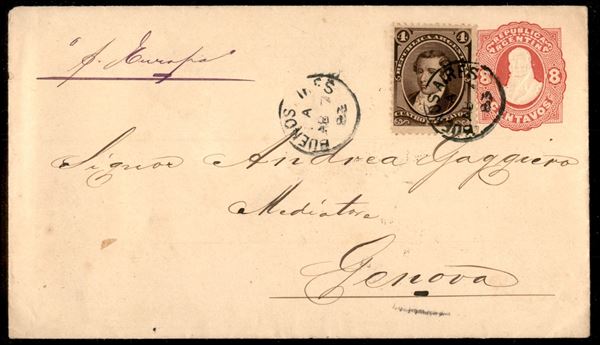 p. Europa
4 REPUBLICA ARGENTINA 4
CUATRO CENTAVOS
REPUBLICA
ARGENTINA
8 8
CENTAVOS
BUENOS AIRES
A
83
BUENOS AIRES
83
Signor Andrea Gaggiero
Mediatore
Genova